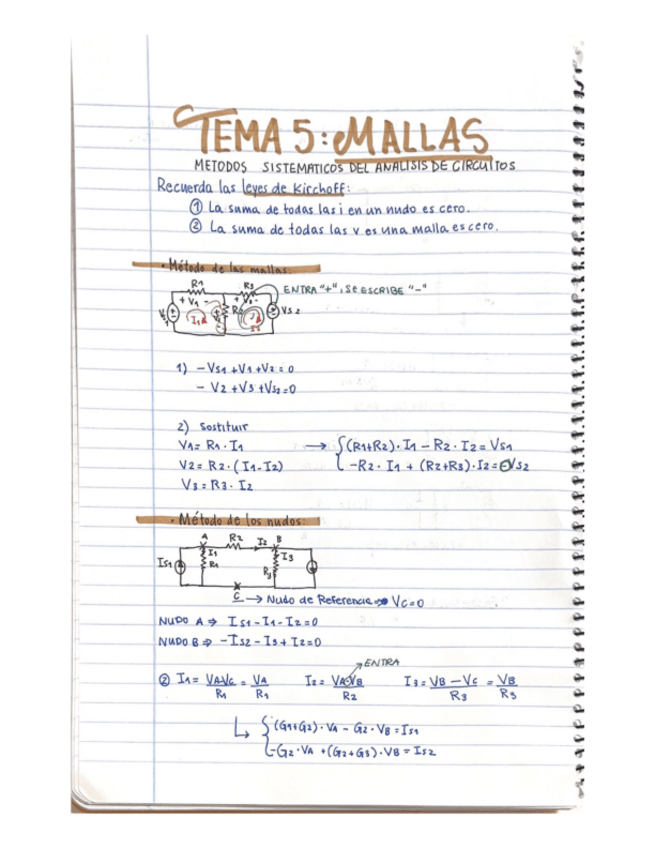 TEMA 5: MALLAS
METODOS SISTEMATICOS DEL ANALISIS DE CIRCUITOS
Recuerda las leyes de Kirchoff:
① La suma de todas las i en un nudo es cero.
② La suma de todas las v es una malla es cero.
· Método de las mallas:
R1 R3
+ V1 - + V3 -
ENTRA "+", se ESCRIBE "-"
I1 VS2
1) -VS1 + V1 + V2 = 0
- V2 + V3 + VS2 = 0
2) Sostituir
V1 = R1 · I1 → (R1+R2) · I1 - R2 · I2 = VS1
V2 = R2 · (I1-I2) -R2 · I1 + (R2+R3) · I2 = -VS2
V3 = R3 · I2
· Método de los nudos:
A R2 I2 B
IS1 I1 R1 R3 I3
C → Nudo de Referencia → VC=0
NUDO A ⇒ IS1 - I1 - I2 = 0
NUDO B ⇒ -IS2 - I3 + I2 = 0
ENTRA
② I1 = VA-VC/R1 = VA/R1 I2 = VA-VB/R2 I3 = VB - VC/R3 = VB/R3
(G1+G2) · VA - G2 · VB = IS1
-G2 · VA + (G2+G3) · VB = IS2